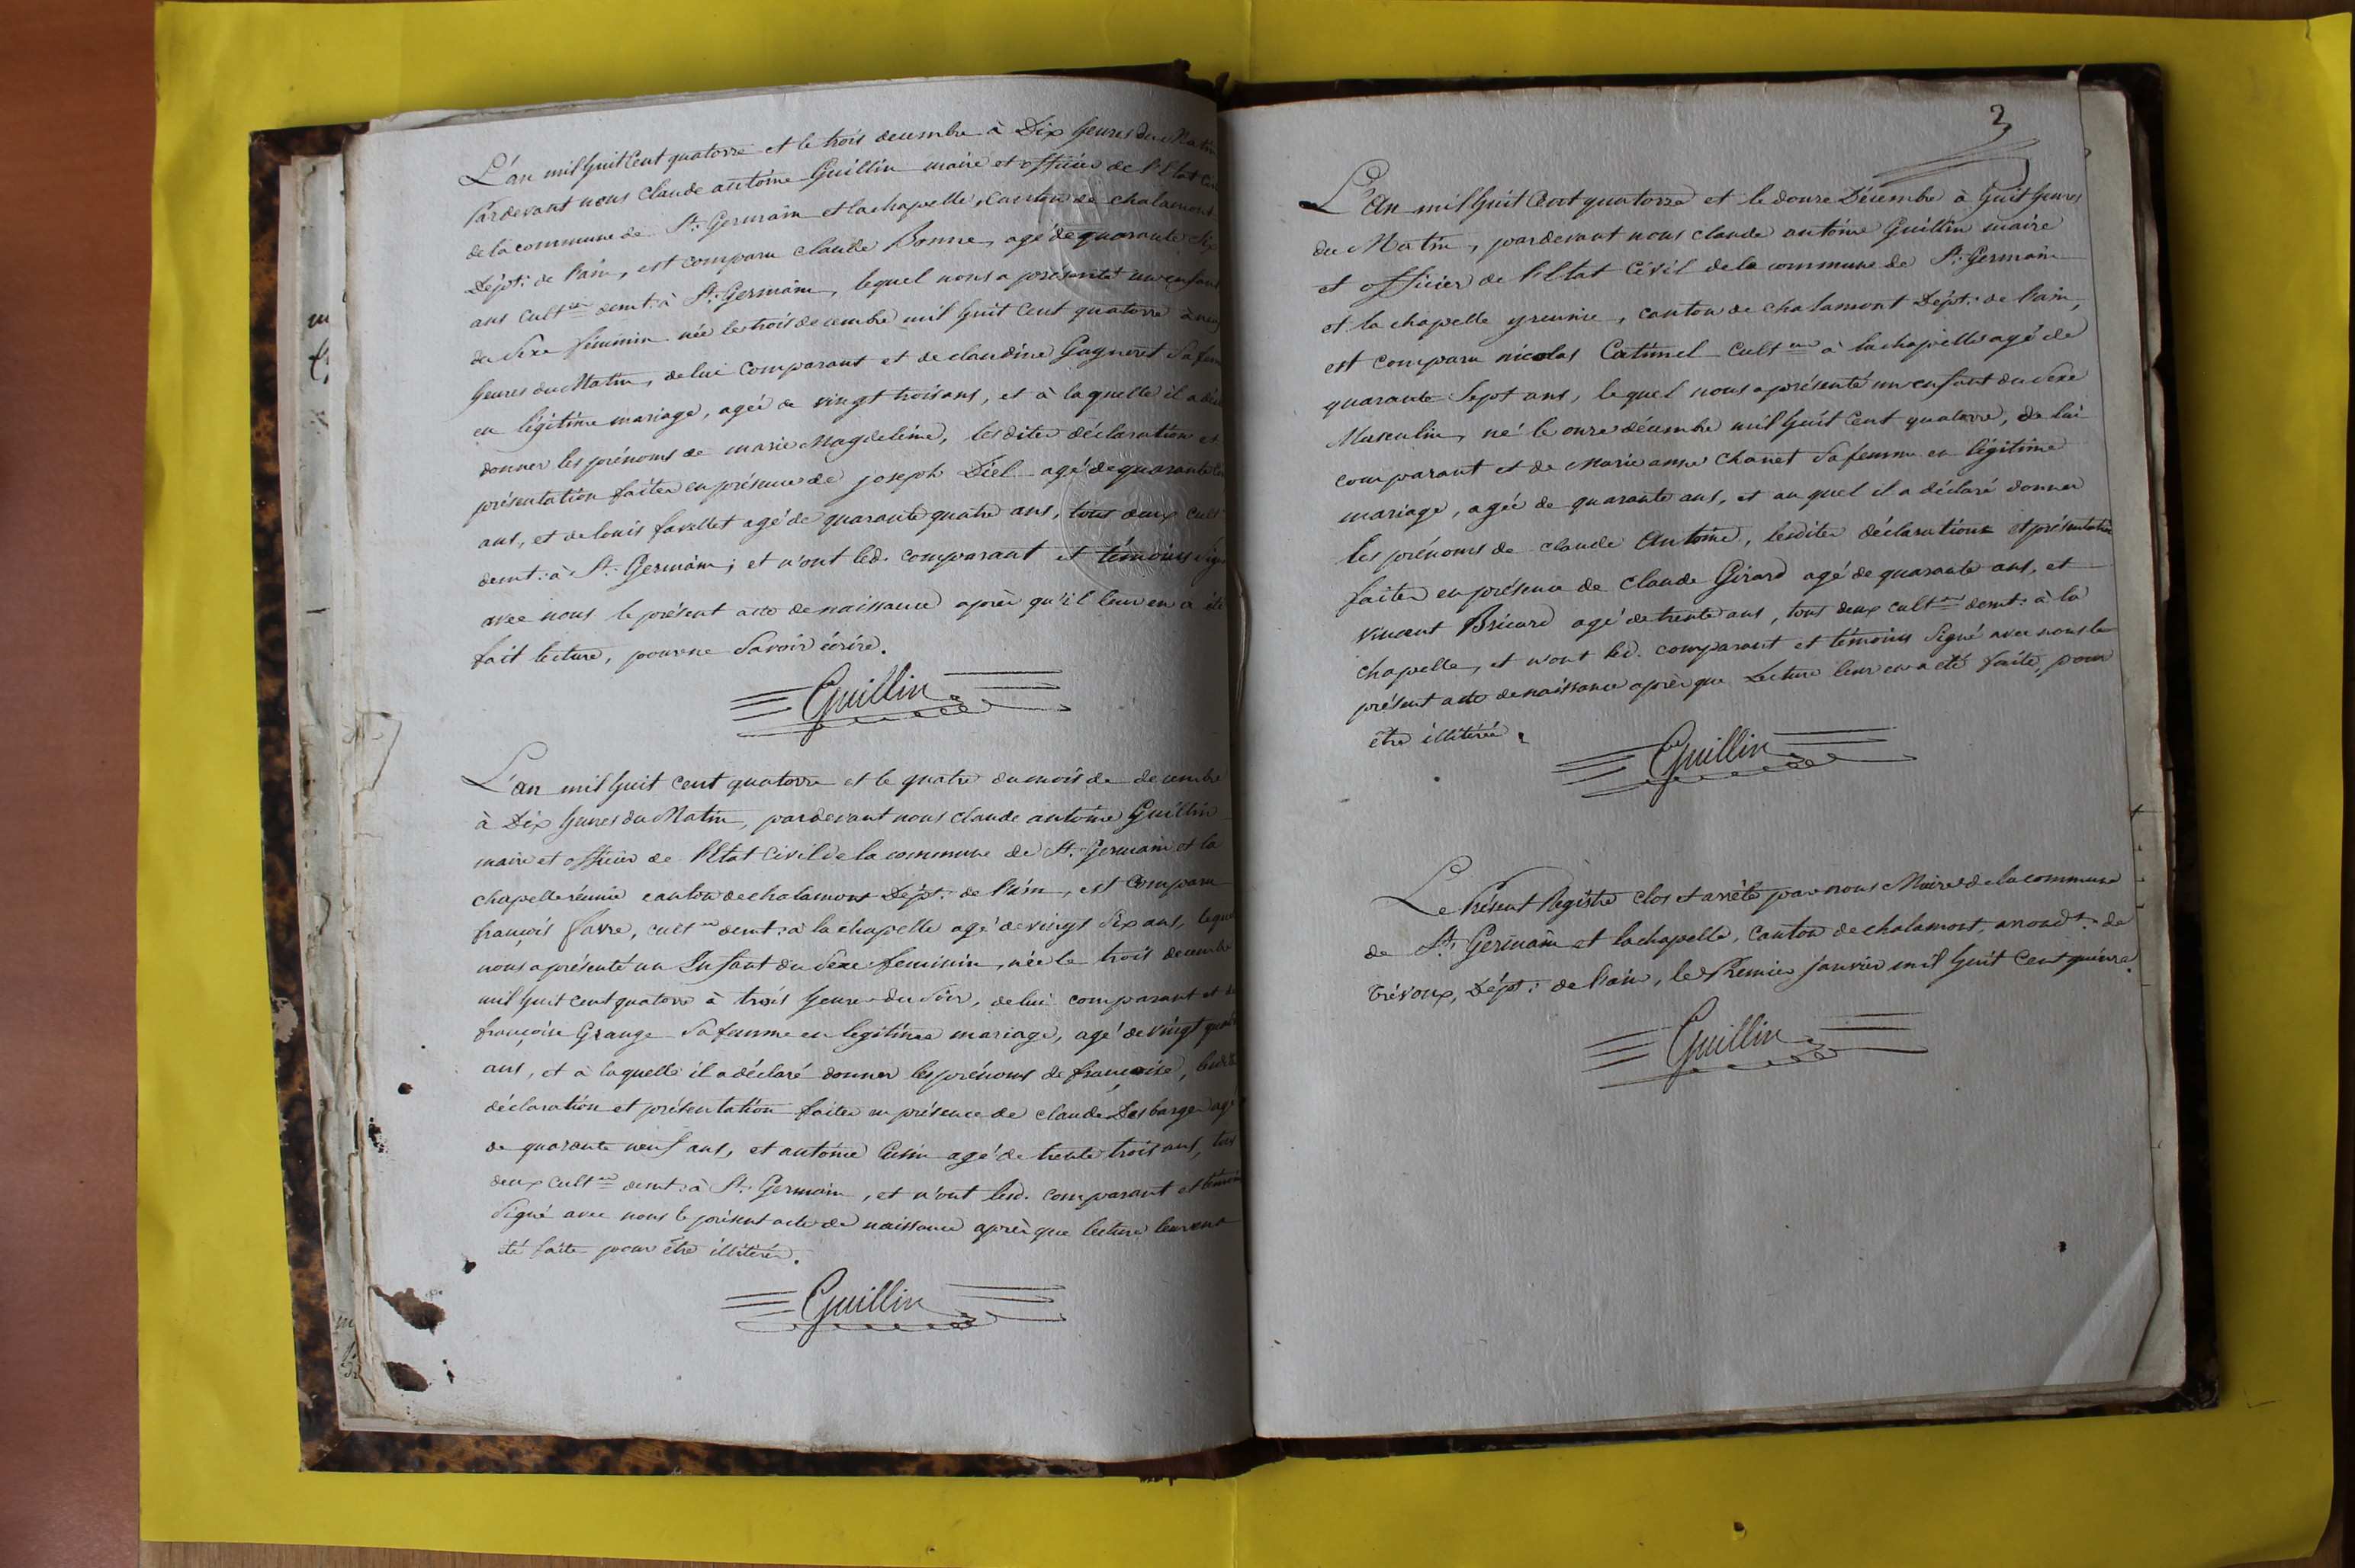 L'an mil huit Cent quatorze et le trois decembre à Dix heures du Matin
Pardevant nous Claude antoine Guillin maire et officier de l'Etat
de la commune de St. Germain et lachapelle, Canton de chalamont
Dépt: de l'ain, est comparu Claude Bonne, agé de quarante
ans cultur demt: à St. Germain, lequel nous a présenté un enfant
du Sexe féminin née le trois decembre mil huit Cent quatorze à
heures du Matin, de lui Comparant et de claudine Gagneret Sa
en légitime mariage, agée de vingt trois ans, et à laquelle il a
donner les prénoms de marie Magdeleine, lesdites déclaration et
présentation faites en présence de joseph Diel agé de quarante
ans, et de louis favellet agé de quarante quatre ans, tous deux cult
demt: à St. Germain; et n'ont led. comparant et témoins
avec nous le présent acte de naissance après qu'il leur en a été
fait lecture, pour ne Savoir écrire.
Guillin
L'an mil huit Cent quatorze et le quatre du mois de decembre
à Dix heures du Matin, pardevant nous Claude antoine Guillin
maire et officier de l'Etat Civil de la commune de St. Germain et la
chapelle réunie canton de chalamont Dépt: de l'ain, est Comparu
françois favre, cultur demt: à la chapelle agé de vingt Six ans, lequel
nous a présenté un Enfant du Sexe feminin, née le trois decembre
mil huit cent quatorze à trois heures du Soir, de lui comparant et de
françoise Grange Sa femme en legitime mariage, agé de vingt
ans, et à laquelle il a déclaré donner les prénoms de francoise,
déclaration et présentation faites en présence de claude Desbarge
de quarante neuf ans, et antoine Cusin agé de trente trois ans,
deux cultur demt: à St. Germain, et n'ont led. comparant et
Signé avec nous le présent acte de naissance après que lecture leur en a
été faite pour être illitérés.
Guillin
3
L'An mil huit Cent quatorze et le douze Décembre à huit heures
du Matin, pardevant nous claude antoine Guillin maire
et officier de l'Etat Civil de la commune de St. Germain
et la chapelle y reunie, canton de chalamont Dépt: de l'ain,
est comparu nicolas Catimel cultur à la chapelle agé de
quarante Sept ans, lequel nous a présenté un enfant du Sexe
Masculin, né le onze décembre mil huit Cent quatorze, de lui
comparant et de Marie anne Chanet Sa femme en légitime
mariage, agée de quarante ans, et auquel il a déclaré donner
les prénoms de claude Antoine, lesdites déclarations et présentation
faites en présence de Claude Girard agé de quarante ans, et
vincent Bricard agé de trente ans, tous deux cultur demt: à la
chapelle, et n'ont led. comparant et témoins Signé avec nous le
présent acte de naissance après que Lecture leur en a été faite, pour
être illitérés.
Guillin
Le Présent Régistre clos et arrêté par nous Maire de la commune
de St. Germain et lachapelle, Canton de chalamont, arrondt. de
trévoux, Dépt: de l'ain, le Premier Janvier mil huit Cent quinze.
Guillin